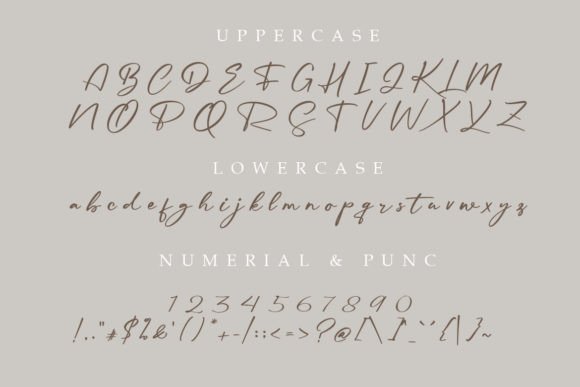 UPPERCASE
A B C D E F G H I J K L M
N O P Q R S T U V W X Y Z
LOWERCASE
a b c d e f g h i j k l m n o p q r s t u v w x y z
NUMERIAL & PUNC
1 2 3 4 5 6 7 8 9 0
! , . " # $ % & ' ( ) * + - / : ; < = > ? @ [ \ ] ^ _ ` ' { | } ~